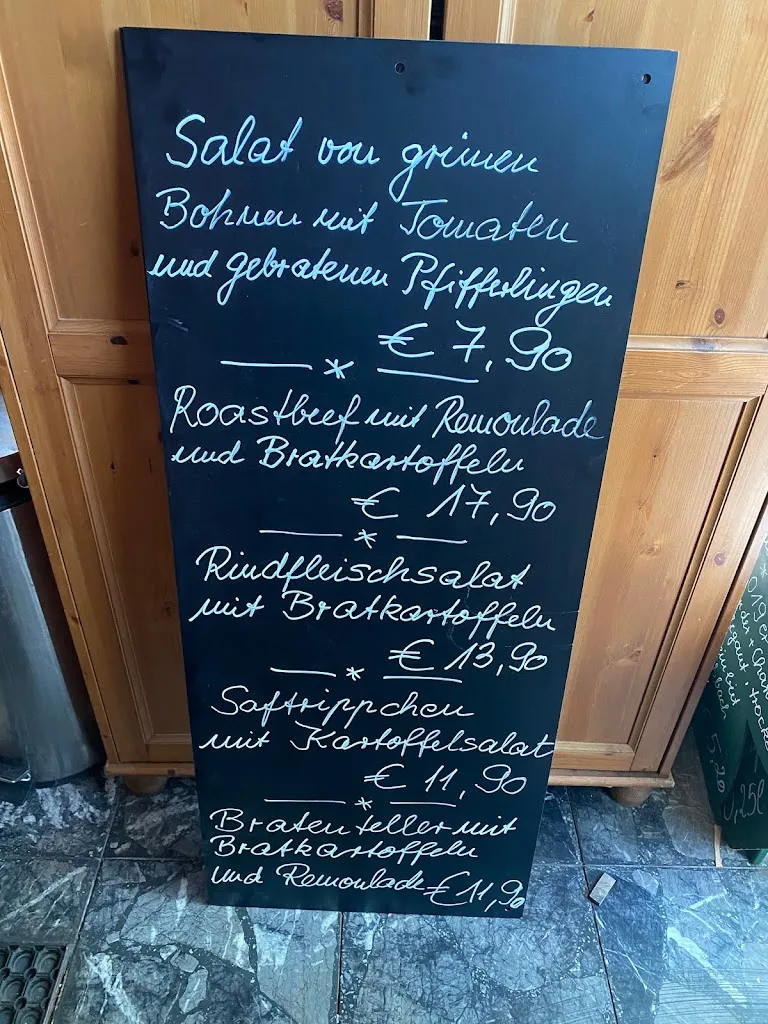 Salat von grünen
Bohnen mit Tomaten
und gebratenen Pfifferlingen
€ 7,90
— * —
Roastbeef mit Remoulade
und Bratkartoffeln
€ 17,90
— * —
Rindfleischsalat
mit Bratkartoffeln
€ 13,90
— * —
Saftrippchen
mit Kartoffelsalat
€ 11,90
— * —
Bratenteller mit
Bratkartoffeln
und Remoulade € 11,90
5,20